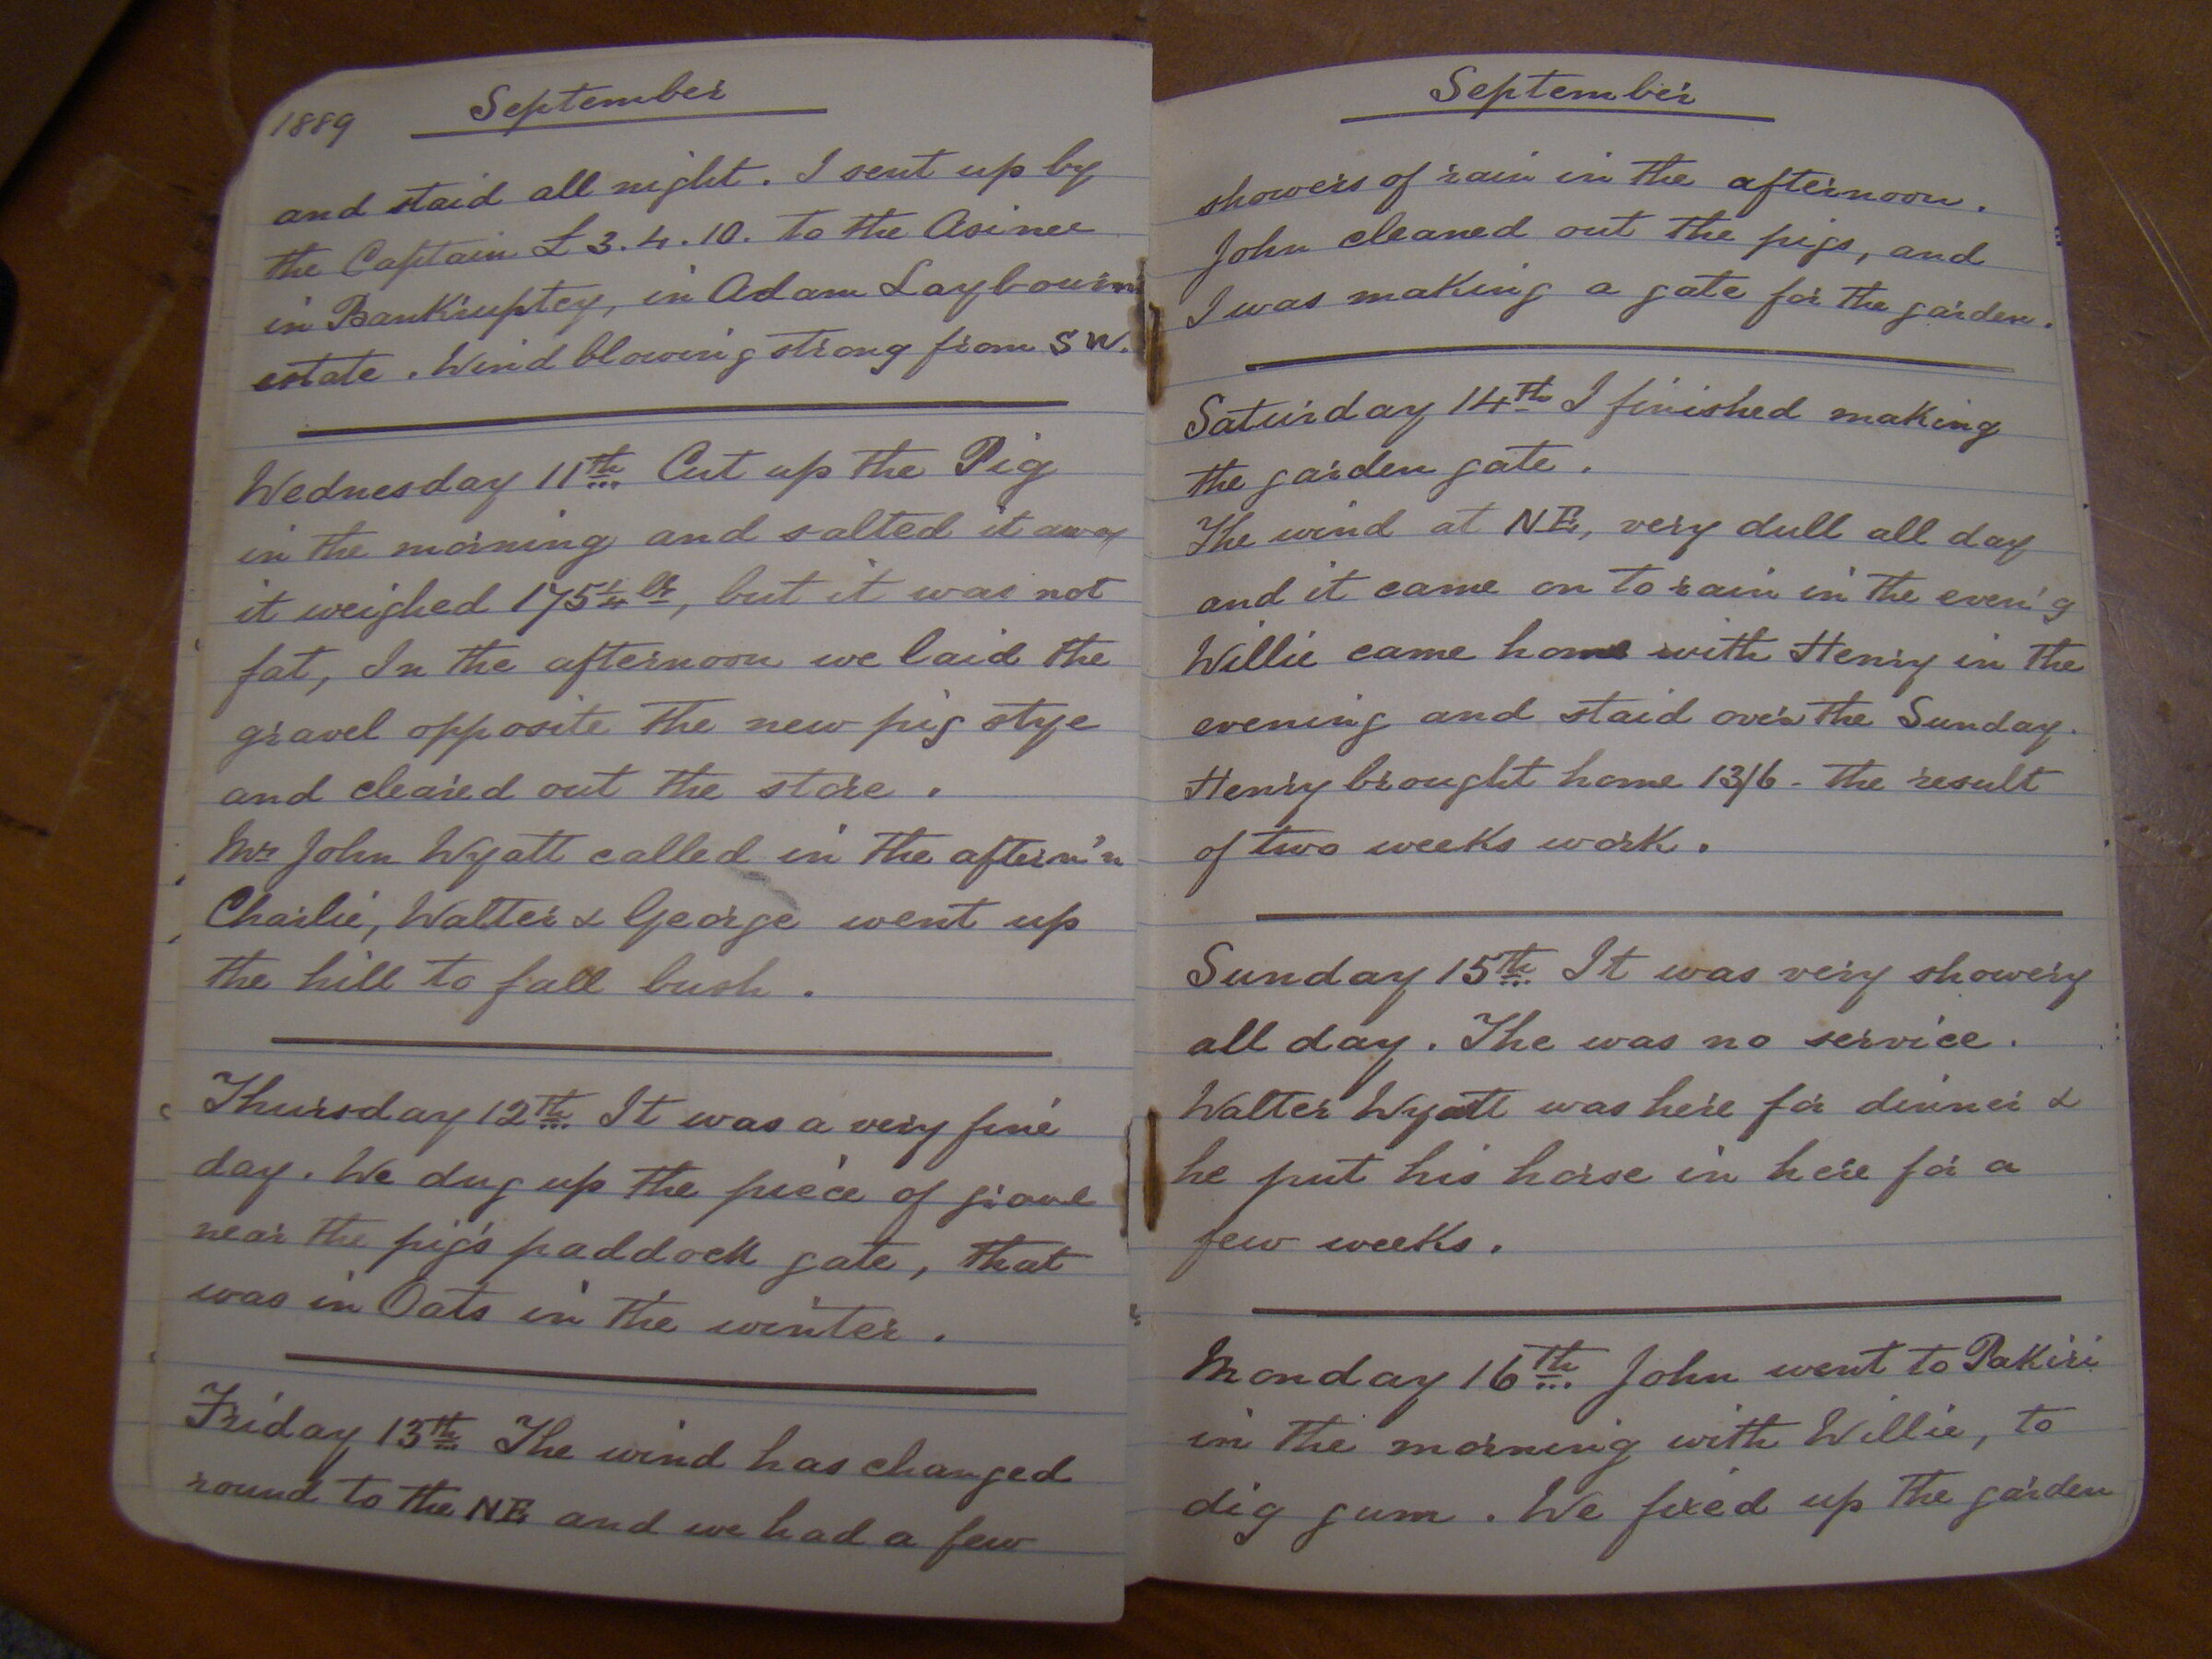 1889 September
and staid all night. I sent up by
the Captain £3.4.10. to the Asinee
in Bankruptcy, in Adam Laybourn
estate. Wind blowing strong from SW.
Wednesday 11th Cut up the Pig
in the morning and salted it away
it weighed 175 1/4 lbs, but it was not
fat, In the afternoon we laid the
gravel opposite the new pig stye
and cleared out the store.
Mr John Wyatt called in the aftern'n
Charlie, Walter & George went up
the hill to fall bush.
Thursday 12th It was a very fine
day. We dug up the piece of gravel
near the pig's paddock gate, that
was in Oats in the winter.
Friday 13th The wind has changed
round to the NE and we had a few
September
showers of rain in the afternoon.
John cleaned out the pigs, and
I was making a gate for the garden.
Saturday 14th I finished making
the garden gate.
The wind at NE, very dull all day
and it came on to rain in the even'g
Willie came home with Henry in the
evening and staid over the Sunday.
Henry brought home 13/6 - the result
of two weeks work.
Sunday 15th It was very showery
all day. The was no service.
Walter Wyatt was here for dinner &
he put his horse in here for a
few weeks.
Monday 16th John went to Pakiri
in the morning with Willie, to
dig gum. We fixed up the garden